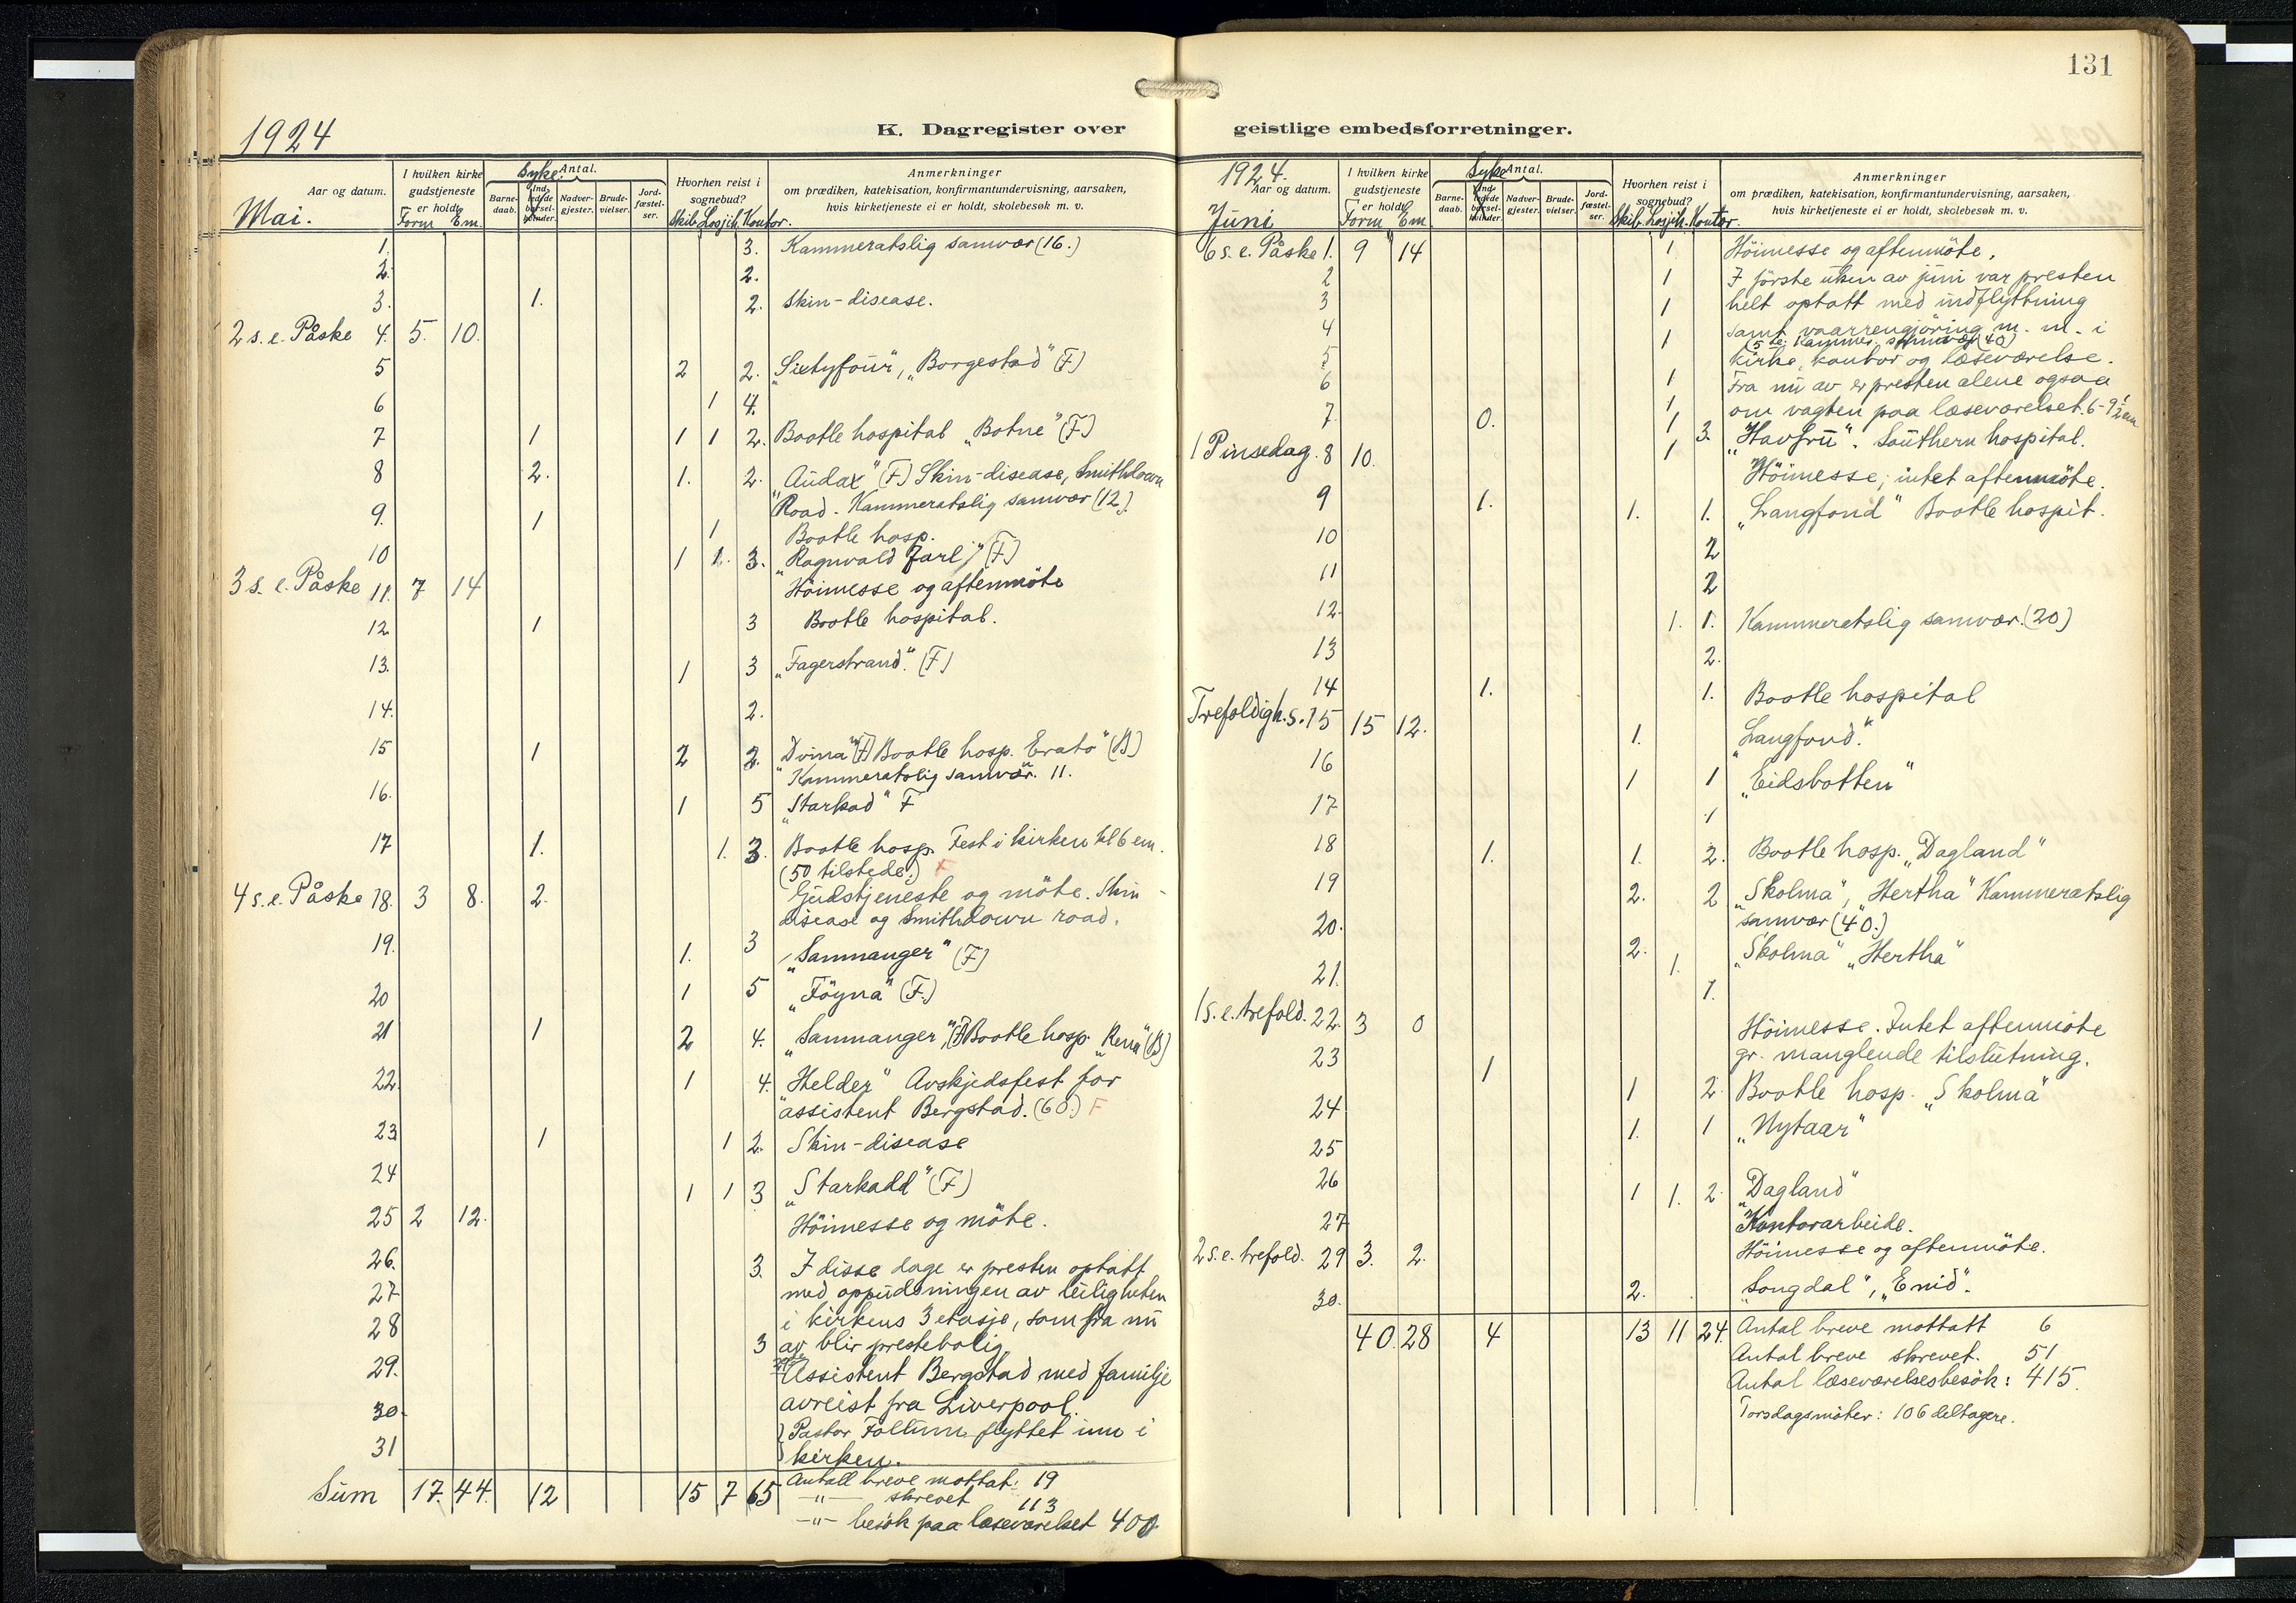 131
K. Dagregister over geistlige embedsforretninger.
1924
Aar og datum.
Mai.
I hvilken kirke gudstjeneste er holdt
Form Em.
Syke. Antal.
Barne-daab.
Nadver-gjester.
Brude-vielser.
Jord-fæstel-ser.
Hvorhen reist i sognebud?
Skib. Losjih. Kontor.
Anmerkninger
om prædiken, katekisation, konfirmantundervisning, aarsaken,
hvis kirketjeneste ei er holdt, skolebesøk m. v.
1. 3. Kammeratslig samvær (16.)
2. 2.
3. 1. 2. Skin-disease.
2 s. e. Påske 4. 5. 10.
5 2 2. „Sixtyfour", „Borgestad" (F)
6 1 4.
7 1 1 1 2. Bootle hospital „Botne" (F)
8 2. 1. 2. „Audax" (F) Skin-disease, Smithdown
Road. Kammeratslig samvær (12).
9. 1 1 Bootle hosp.
10 1 1. 3. „Ragnvald Jarl" (F)
3 s. e. Påske 11. 7 14 Höimesse og aftenmöte
12 1 3 Bootle hospital.
13. 1 3 „Fagerstrand". (F)
14. 2.
15 1 2 2. „Dvina" (F) Bootle hosp. Erato" (B)
Kammeratslig samvær. 11.
16. 1 5 „Starkad" F
17 1. 1. 3. Bootle hosp. Fest i kirken kl 6 em.
(50 tilstede.) F
4 s. e. Påske 18. 3 8. 2. Gudstjeneste og möte. Skin-
disease og Smithdown road.
19. 1. 3 „Sammanger" (F)
20 1 5 „Föyna" (F.)
21 1 2 4. „Sammanger", (F) Bootle hosp. „Rena" (B)
22 1 4. „Helder" Avskjedsfest for
assistent Bergstad. (60.) F
23 1 1 2. Skin-disease
24 1 1 3 „Starkadd" (F)
25 2 12. Höimesse og möte.
26. 3. I disse dage er presten optatt
27 med oppudsningen av leiligheten
i kirkens 3 etasje, som fra nu
28 3 av blir prestebolig.
29. Assistent Bergstad med familje
30. avreist fra Liverpool.
Pastor Foltum flyttet inn i
31 kirken.
Sum 17. 44. 12 15 7 65 Antall breve mottat: 19
-"- skrevet 113
-"- besök paa læseværelset 400
1924.
Aar og datum.
Juni
I hvilken kirke gudstjeneste er holdt
Form Em
Syke Antal.
Barne-daab.
Nadver-gjester.
Brude-vielser.
Jord-fæstel-ser.
Hvorhen reist i sognebud?
Skib. Losjih. Kontor.
Anmerkninger
om prædiken, katekisation, konfirmantundervisning, aarsaken,
hvis kirketjeneste ei er holdt, skolebesøk m. v.
6 s. e. Påske 1. 9 14 1 Höimesse og aftenmöte.
2 1 I förste uken av juni var presten
3 1 helt optatt med indflyttning
4 1 samt vaarrengjöring m. m. i
(5te: Kammer. samvær (40)
5 kirke, kontor og læseværelse.
6 1 Fra nu av er presten alene ogsaa
1 om vagten paa læseværelset. 6-9½ em
7. 0. 1 3. „Havfru". Southern hospital.
1 Pinsedag. 8 10. 1 Höimesse; intet aftenmöte.
9 1. 1. 1. „Langfond" Bootle hospit.
10 2
11 2
12. 1. 1. Kammeratslig samvær. (20)
13 2.
14 1. 1. Bootle hospital
Trefoldigh. s. 15 15 12. 1. „Langfond."
16 1 1 „Eidsbotten"
17 1
18 1. 1. 2. Bootle hosp. „Dagland"
19 2. 2 „Skolma", Hertha" Kammeratslig
samvær (40.)
20. 2. „Skolma" „Hertha"
21. 1. 1.
1 s. e. trefold. 22. 3 0 Höimesse. Intet aftenmöte
gr. manglende tilslutning.
23 1 1 2. Bootle hosp. „Skolma"
24 1. 1 „Nytaar"
25
26 1 1. 2. „Dagland"
27 Kontorarbeide.
2 s. e. trefold. 29 3. 2. Höimesse og aftenmöte.
30. 2. „Songdal", „Enid".
40. 28 4 13 11 24. Antal breve mottatt 6
Antal breve skrevet. 51
Antal læseværelsesbesök: 415.
Torsdagsmöter: 106 deltagere.